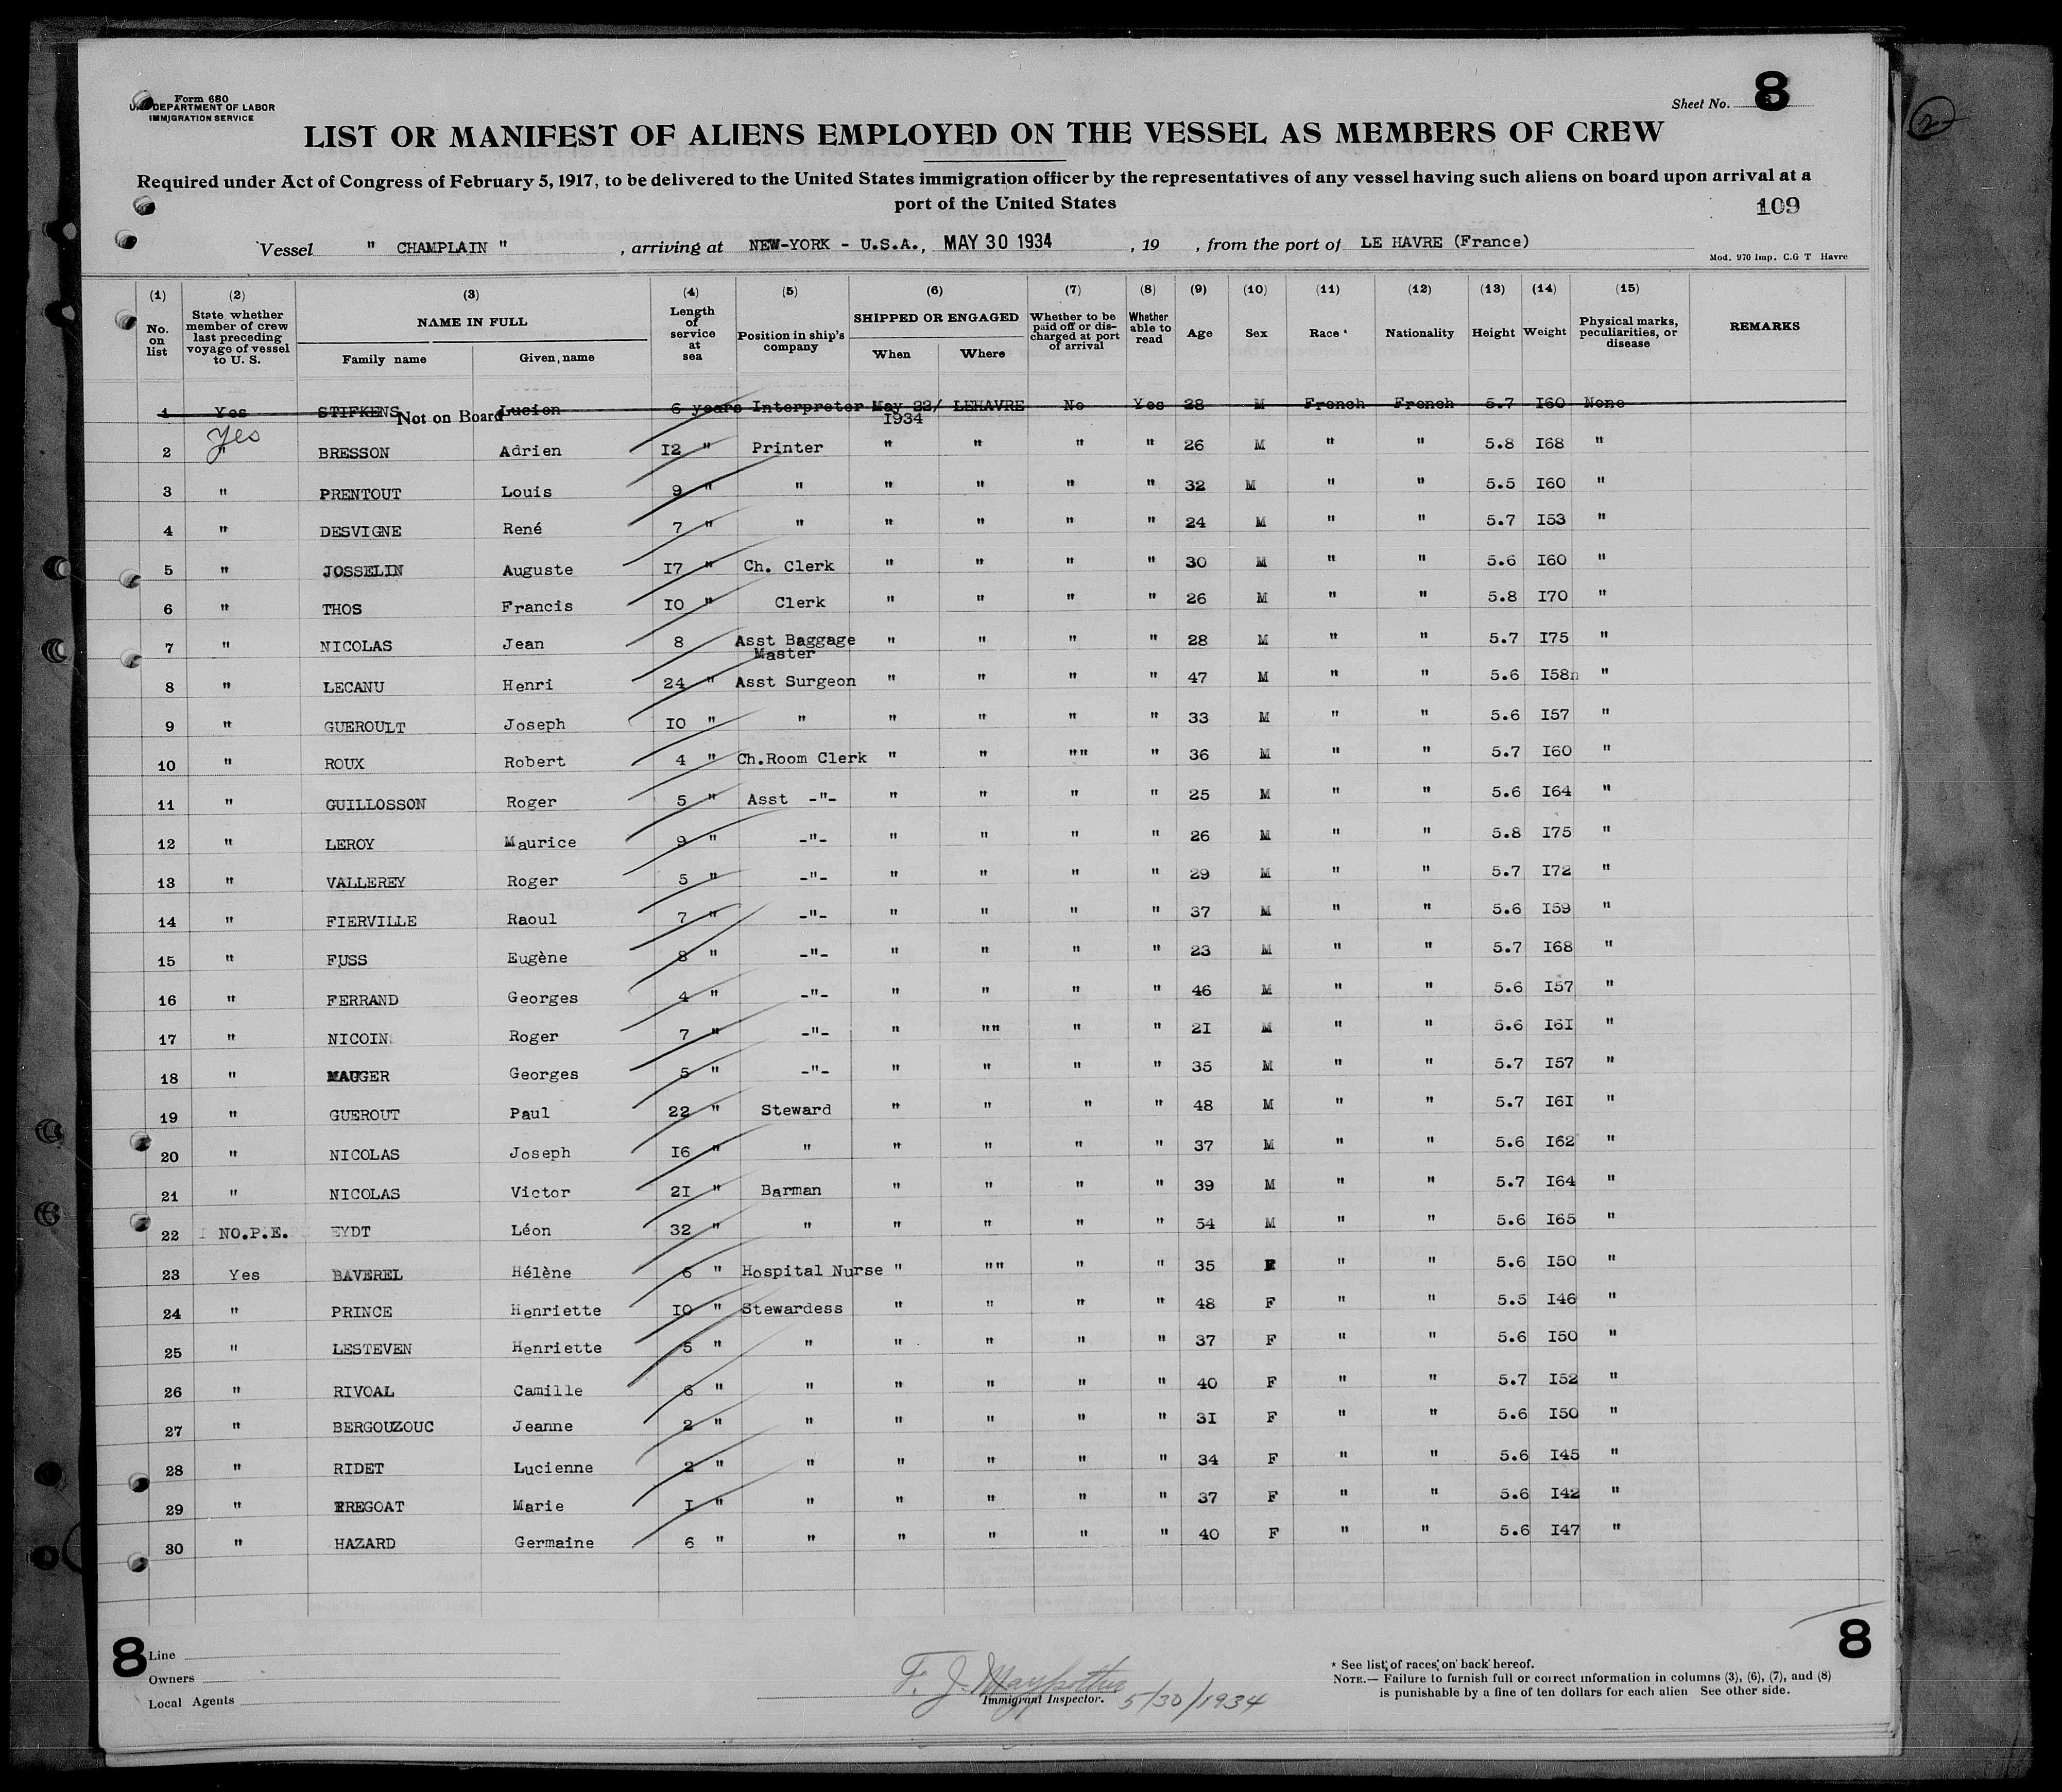 Form 680
U.S. DEPARTMENT OF LABOR
IMMIGRATION SERVICE
Sheet No. 8
2
LIST OR MANIFEST OF ALIENS EMPLOYED ON THE VESSEL AS MEMBERS OF CREW
Required under Act of Congress of February 5, 1917, to be delivered to the United States immigration officer by the representatives of any vessel having such aliens on board upon arrival at a
port of the United States
109
Vessel " CHAMPLAIN " , arriving at NEW-YORK - U.S.A., MAY 30 1934 , 19 , from the port of LE HAVRE (France)
Mod. 970 Imp. C.G T Havre
(1) (2) (3) (4) (5) (6) (7) (8) (9) (10) (11) (12) (13) (14) (15)
No. on list State whether member of crew last preceding voyage of vessel to U. S. NAME IN FULL Family name Given name Length of service at sea Position in ship's company SHIPPED OR ENGAGED When Where Whether to be paid off or discharged at port of arrival Whether able to read Age Sex Race * Nationality Height Weight Physical marks, peculiarities, or disease REMARKS
1 Yes STIFKENS Not on Board Lucien 6 years Interpreter May 22/ 1934 LEHAVRE No Yes 28 M French French 5.7 I60 None
Yes
2 " BRESSON Adrien I2 " Printer " " " " 26 M " " 5.8 I68 "
3 " PRENTOUT Louis 9 " " " " " " 32 M " " 5.5 I60 "
4 " DESVIGNE René 7 " " " " " " 24 M " " 5.7 I53 "
5 " JOSSELIN Auguste I7 " Ch. Clerk " " " " 30 M " " 5.6 I60 "
6 " THOS Francis I0 " Clerk " " " " 26 M " " 5.8 I70 "
7 " NICOLAS Jean 8 Asst Baggage Master " " " " 28 M " " 5.7 I75 "
8 " LECANU Henri 24 " Asst Surgeon " " " " 47 M " " 5.6 I58n "
9 " GUEROULT Joseph I0 " " " " " " 33 M " " 5.6 I57 "
10 " ROUX Robert 4 " Ch.Room Clerk " " "" " 36 M " " 5.7 I60 "
11 " GUILLOSSON Roger 5 " Asst -"- " " " " 25 M " " 5.6 I64 "
12 " LEROY Maurice 9 " -"- " " " " 26 M " " 5.8 I75 "
13 " VALLEREY Roger 5 " -"- " " " " 29 M " " 5.7 I72 "
14 " FIERVILLE Raoul 7 " -"- " " " " 37 M " " 5.6 I59 "
15 " FUSS Eugène 8 " -"- " " " " 23 M " " 5.7 I68 "
16 " FERRAND Georges 4 " -"- " " " " 46 M " " 5.6 I57 "
17 " NICOIN Roger 7 " -"- " "" " " 2I M " " 5.6 I6I "
18 " MAUGER Georges 5 " -"- " " " " 35 M " " 5.7 I57 "
19 " GUEROUT Paul 22 " Steward " " " " 48 M " " 5.7 I6I "
20 " NICOLAS Joseph I6 " " " " " " 37 M " " 5.6 I62 "
21 " NICOLAS Victor 2I " Barman " " " " 39 M " " 5.7 I64 "
22 NO.P.E. EYDT Léon 32 " " " " " " 54 M " " 5.6 I65 "
23 Yes BAVEREL Hélène 6 " Hospital Nurse " "" " " 35 F " " 5.6 I50 "
24 " PRINCE Henriette I0 " Stewardess " " " " 48 F " " 5.5 I46 "
25 " LESTEVEN Henriette 5 " " " " " " 37 F " " 5.6 I50 "
26 " RIVOAL Camille 6 " " " " " " 40 F " " 5.7 I52 "
27 " BERGOUZOUC Jeanne 2 " " " " " " 3I F " " 5.6 I50 "
28 " RIDET Lucienne 2 " " " " " " 34 F " " 5.6 I45 "
29 " TREGOAT Marie I " " " " " " 37 F " " 5.6 I42 "
30 " HAZARD Germaine 6 " " " " " " 40 F " " 5.6 I47 "
8
8
Line
Owners
Local Agents
F. J.
Immigrant Inspector. 5/30/1934
* See list of races on back hereof.
NOTE.— Failure to furnish full or correct information in columns (3), (6), (7), and (8)
is punishable by a fine of ten dollars for each alien See other side.